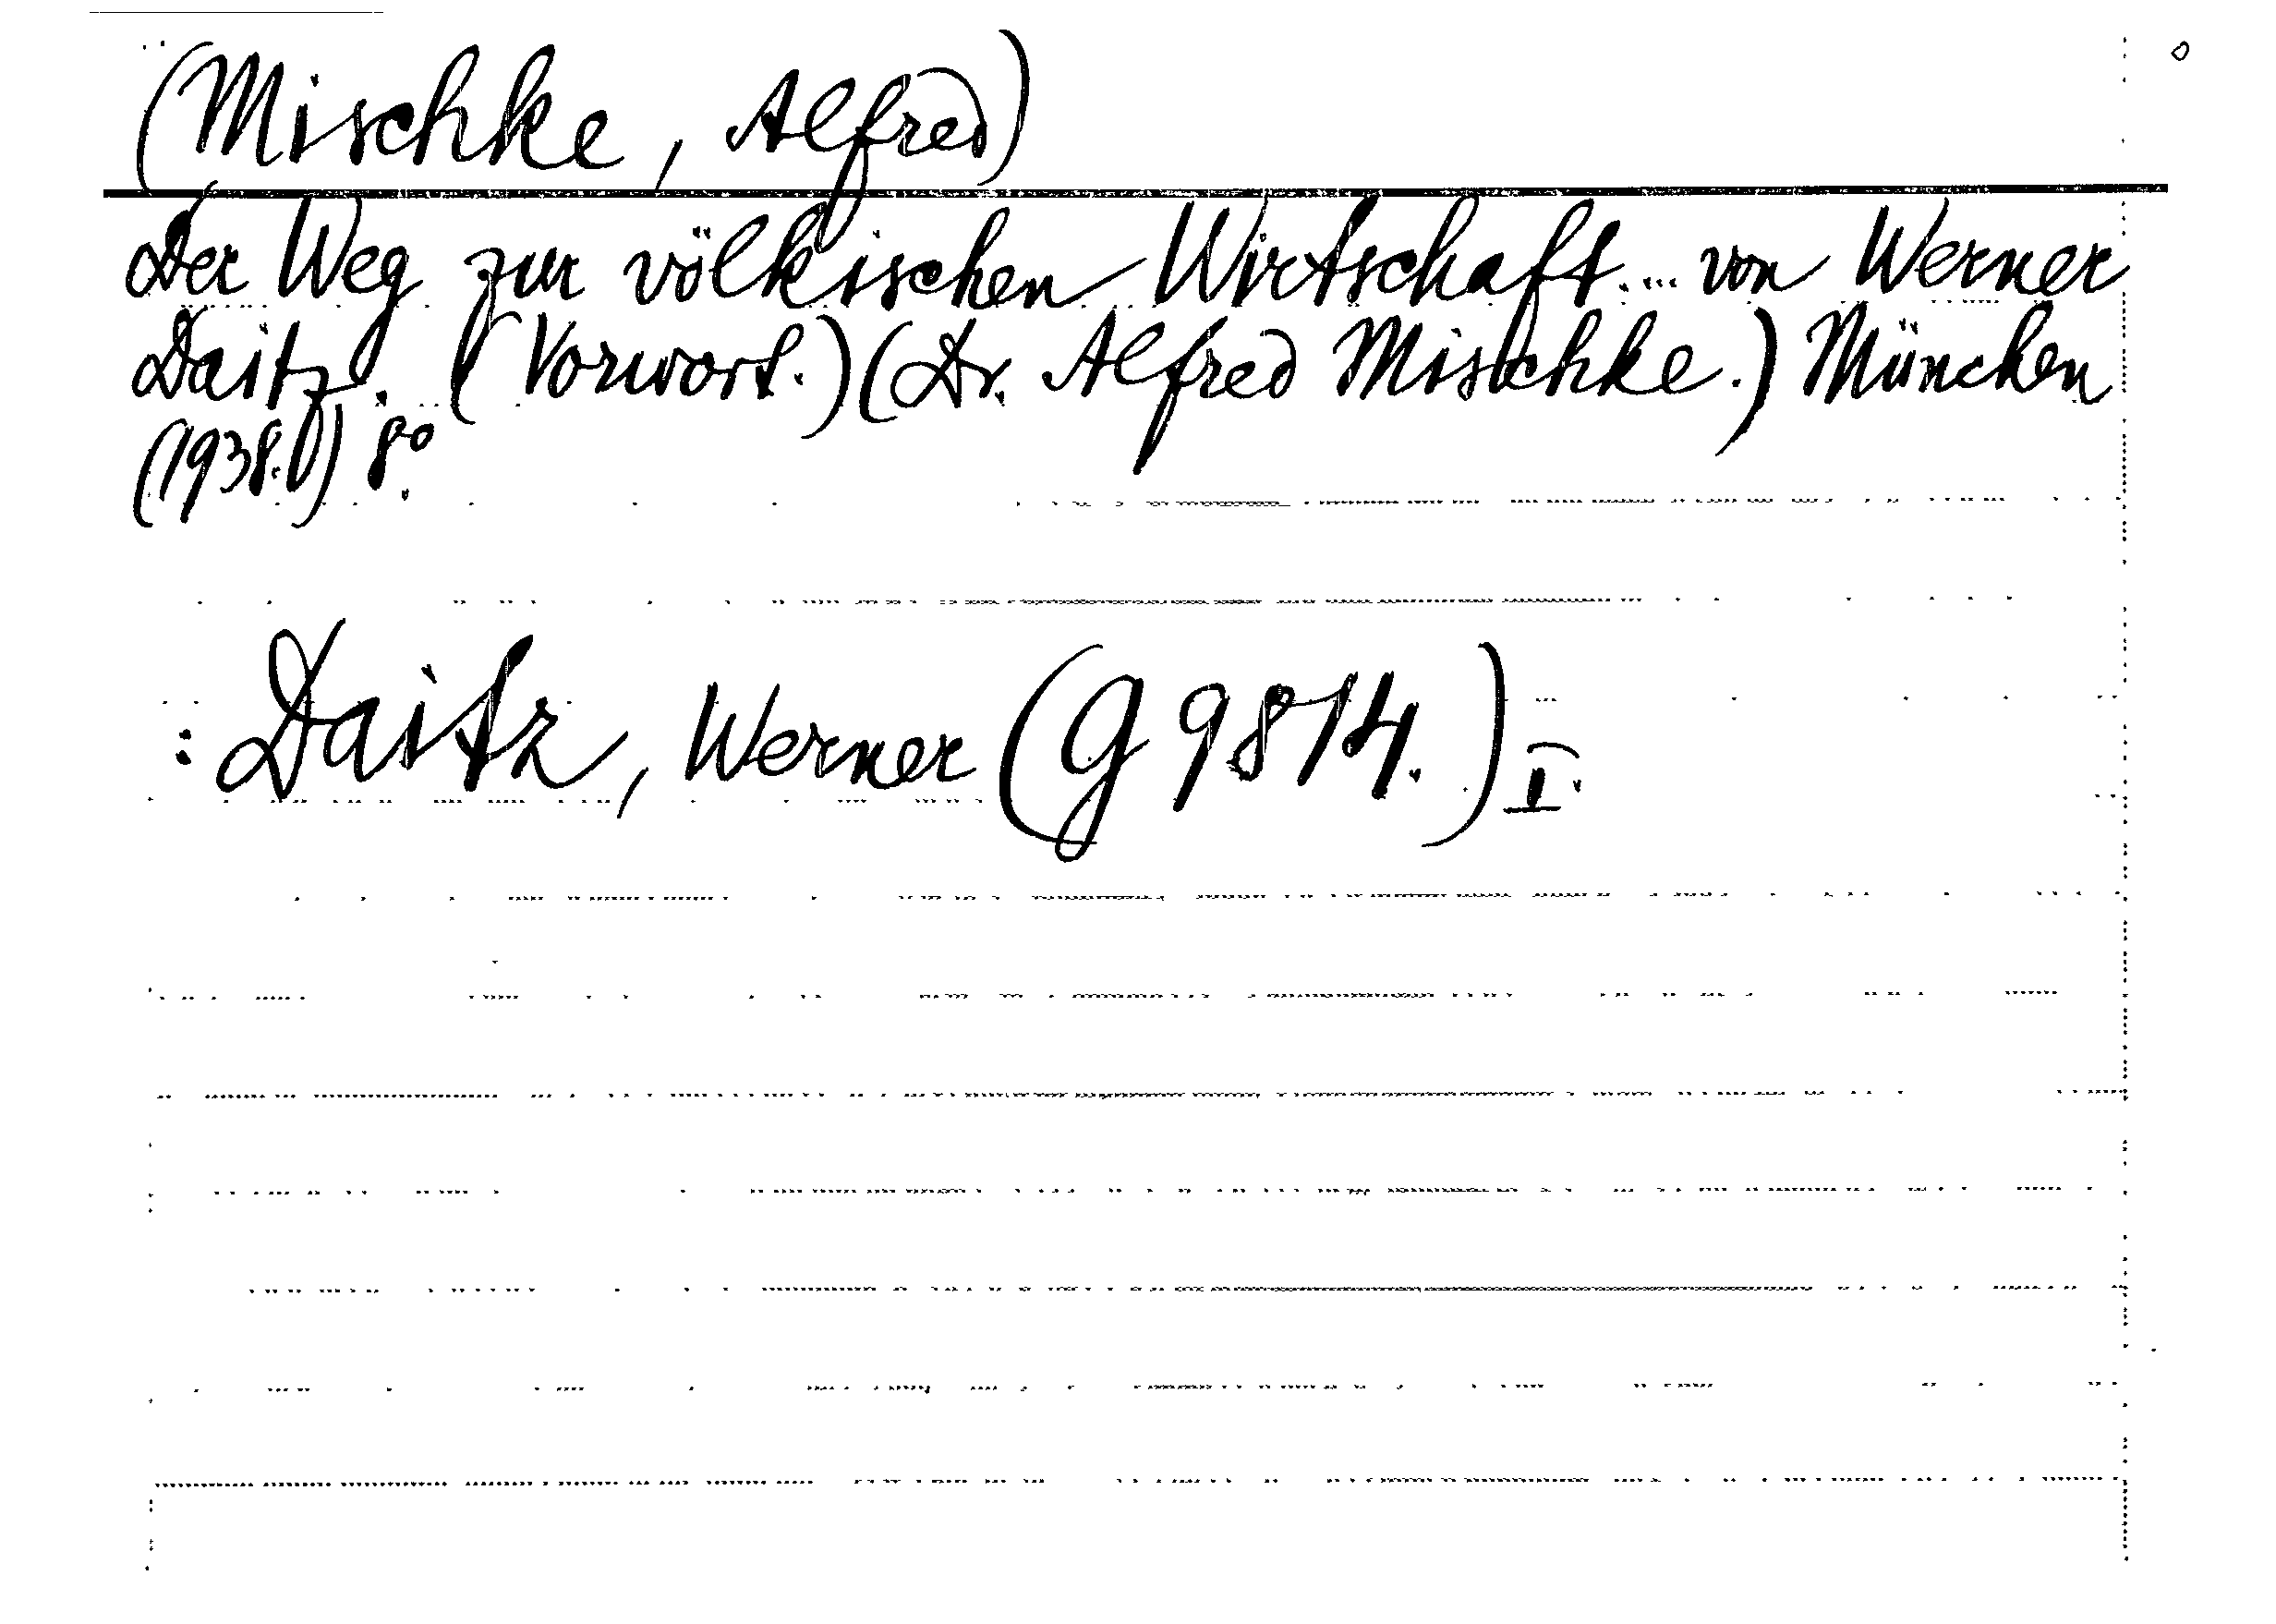 (Mischke, Alfred)
Der Weg zur völkischen Wirtschaft... von Werner
Daitz. (Vorwort.) (Dr. Alfred Mischke.) München
(1938.) 8°.
: Daitz, Werner (G 9814.) I.